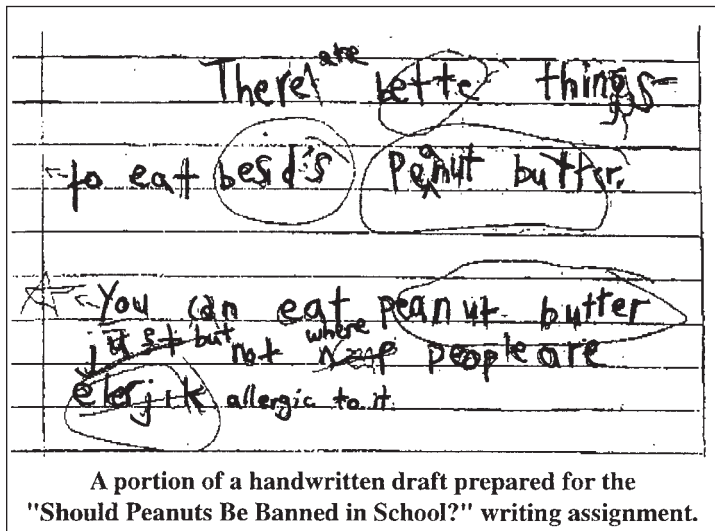 There are bette things
to eat besid's peanut butter.
You can eat peanut butter
just but not where people are
elerjik allergic to it.
A portion of a handwritten draft prepared for the
"Should Peanuts Be Banned in School?" writing assignment.